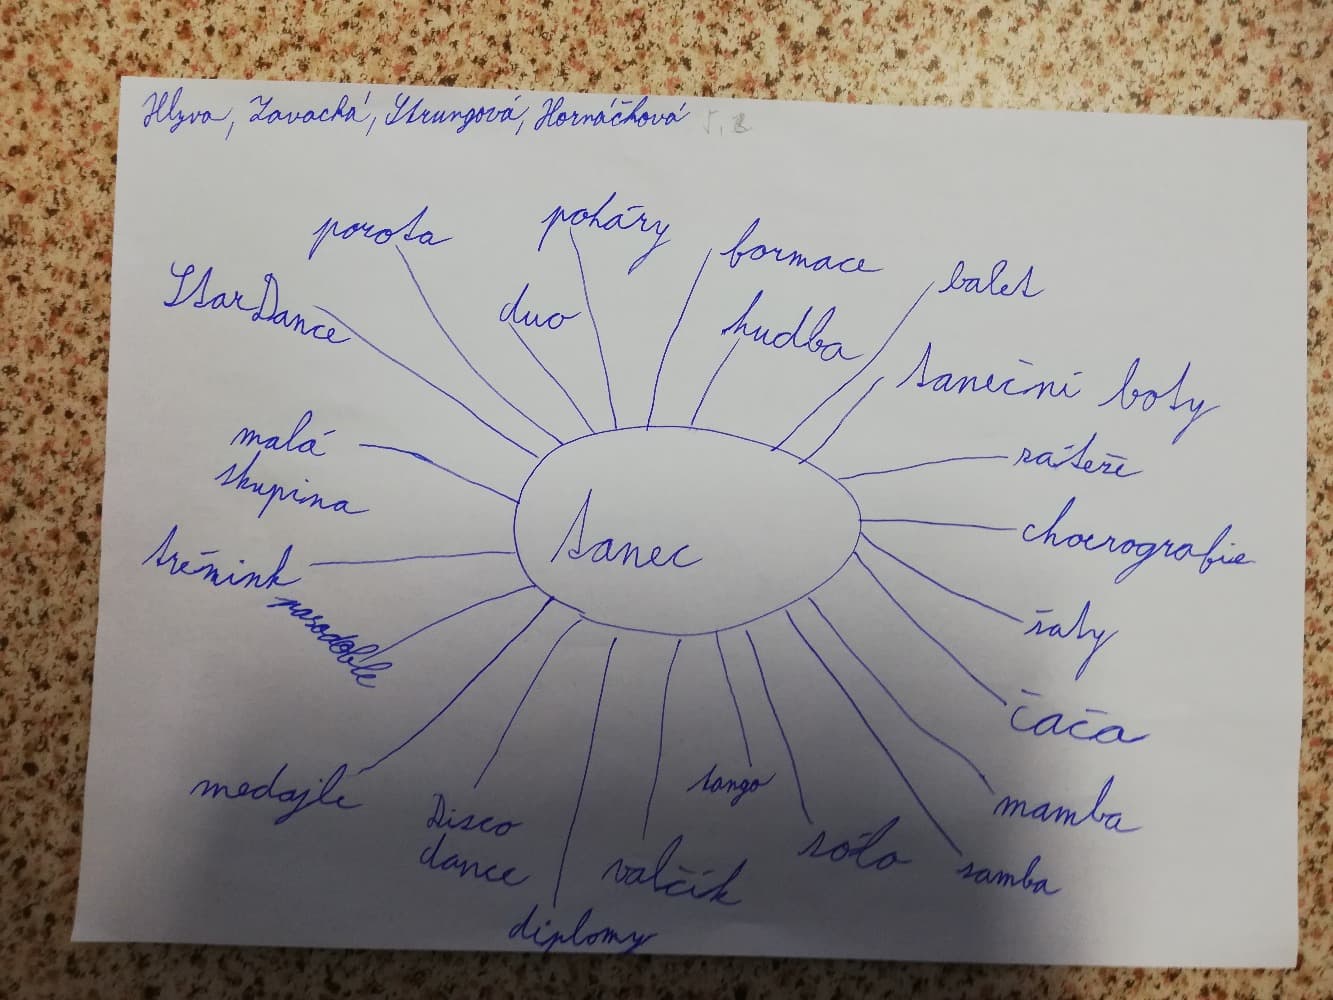 Hlyva, Zavacká, Strungová, Hornáčková 5. B
porota
poháry
formace
balet
StarDance
duo
hudba
taneční boty
malá
skupina
zátěže
choerografie
tanec
trénink
pasodoble
šaty
čača
medajle
Disco
dance
tango
mamba
valčík
sólo
samba
diplomy